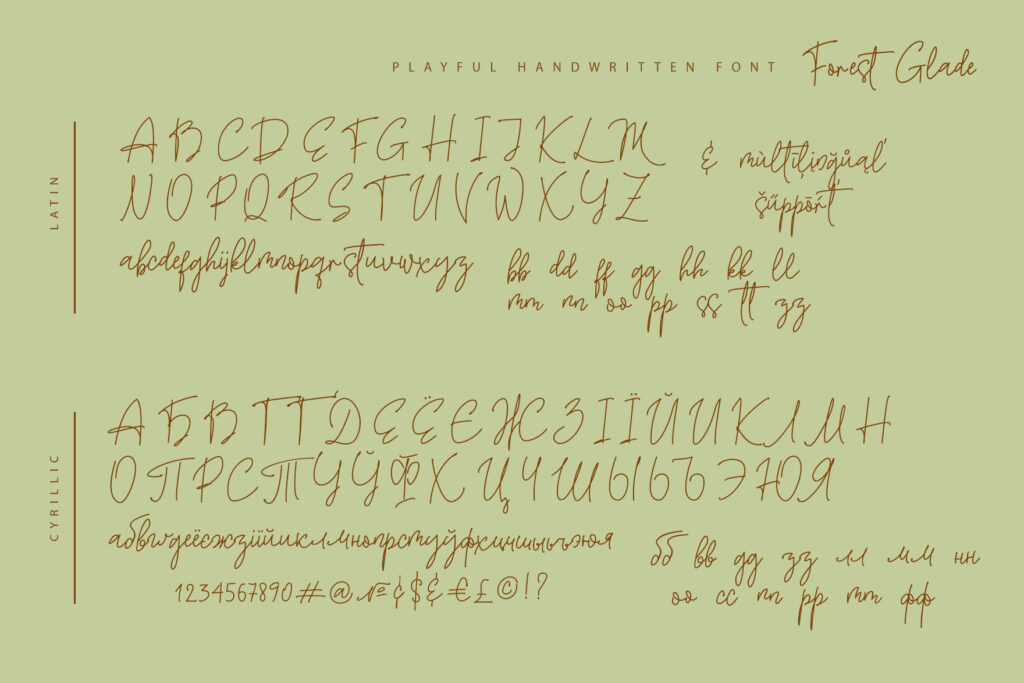 PLAYFUL HANDWRITTEN FONT Forest Glade
LATIN
ABCDEFGHIJKLM
NOPQRSTUVWXYZ
abcdefghijklmnopqrstuvwxyz
& mùltīļinğůąľ
šűppōŕť
bb dd ff gg hh kk ll
mm nn oo pp ss tt zz
CYRILLIC
АБВГҐДЕЁЄЖЗІЇЙИКЛМН
ОПРСТУЎФХЦЧШЫЬЪЭЮЯ
абвгґдеёєжзіїйиклмнопрстуўфхцчшыьъэюя
1234567890#@№¢$&€£©!?
бб вв дд зз лл мм нн
оо сс пп рр тт фф